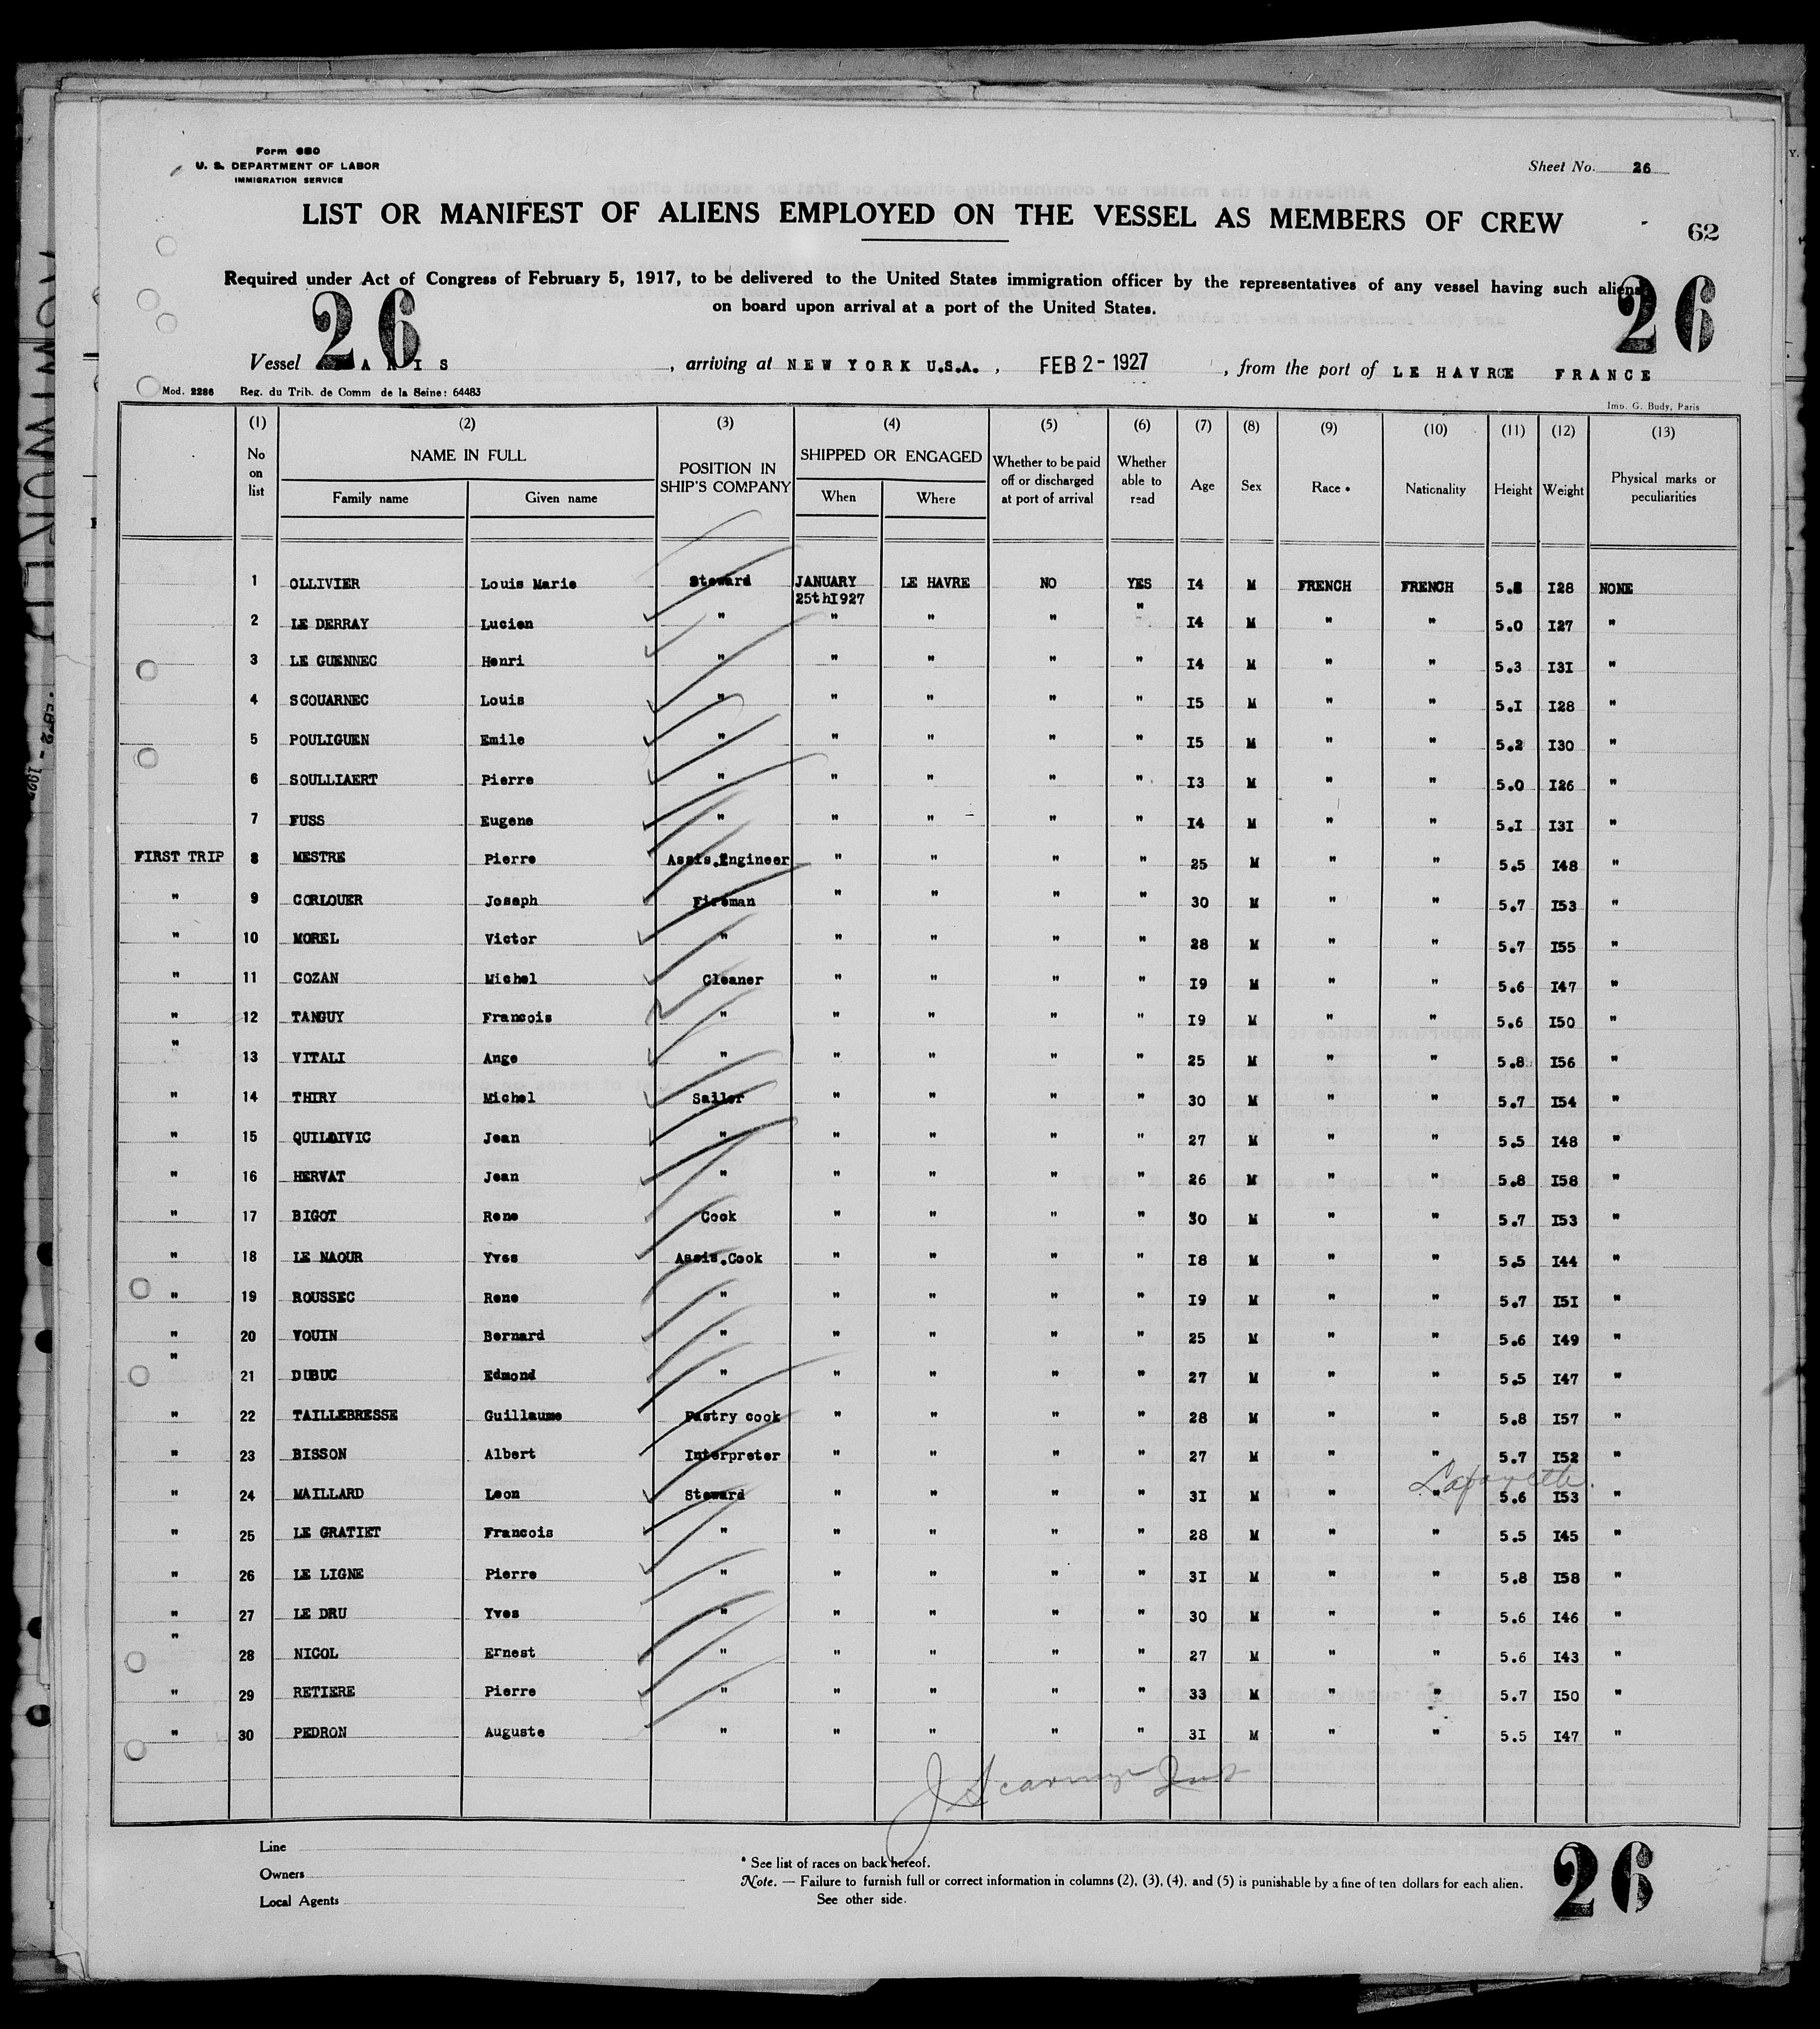 Form 680
U. S. DEPARTMENT OF LABOR
IMMIGRATION SERVICE
Sheet No. 26
LIST OR MANIFEST OF ALIENS EMPLOYED ON THE VESSEL AS MEMBERS OF CREW
62
Required under Act of Congress of February 5, 1917, to be delivered to the United States immigration officer by the representatives of any vessel having such aliens
on board upon arrival at a port of the United States.
26 26
Vessel A R I S , arriving at NEW YORK U.S.A. , FEB 2 - 1927 , from the port of LE HAVRE FRANCE
Mod. 2286 Reg. du Trib. de Comm de la Seine: 64483
Imp. G. Budy, Paris
(1) (2) (3) (4) (5) (6) (7) (8) (9) (10) (11) (12) (13)
No on list NAME IN FULL Family name Given name POSITION IN SHIP'S COMPANY SHIPPED OR ENGAGED When Where Whether to be paid off or discharged at port of arrival Whether able to read Age Sex Race * Nationality Height Weight Physical marks or peculiarities
1 OLLIVIER Louis Marie Steward JANUARY 25thI927 LE HAVRE NO YES I4 M FRENCH FRENCH I28 NONE
2 LE DERRAY Lucien " " " " " I4 M " " 5.0 I27 "
3 LE GUENNEC Henri " " " " " I4 M " " 5.3 I3I "
4 SCOUARNEC Louis " " " " " I5 M " " 5.I I28 "
5 POULIGUEN Emile " " " " " I5 M " " 5.2 I30 "
6 SOULLIAERT Pierre " " " " " I3 M " " 5.0 I26 "
7 FUSS Eugene " " " " " I4 M " " 5.I I3I "
FIRST TRIP 8 MESTRE Pierre Assis.Engineer " " " " 25 M " " 5.5 I48 "
" 9 CORLOUER Joseph Fireman " " " " 30 M " " 5.7 I53 "
" 10 MOREL Victor " " " " " 28 M " " 5.7 I55 "
" 11 COZAN Michel Cleaner " " " " I9 M " " 5.6 I47 "
" 12 TANGUY Francois " " " " " I9 M " " 5.6 I50 "
" 13 VITALI Ange " " " " " 25 M " " 5.8 I56 "
" 14 THIRY Michel Sailor " " " " 30 M " " 5.7 I54 "
" 15 QUILDIVIC Jean " " " " " 27 M " " 5.5 I48 "
" 16 HERVAT Jean " " " " " 26 M " " 5.8 I58 "
" 17 BIGOT Rene Cook " " " " 30 M " " 5.7 I53 "
" 18 LE NAOUR Yves Assis.Cook " " " " I8 M " " 5.5 I44 "
" 19 ROUSSEC Rene " " " " " I9 M " " 5.7 I5I "
" 20 VOUIN Bernard " " " " " 25 M " " 5.6 I49 "
" 21 DUBUC Edmond " " " " " 27 M " " 5.5 I47 "
" 22 TAILLEBRESSE Guillaume Pastry cook " " " " 28 M " " 5.8 I57 "
" 23 BISSON Albert Interpreter " " " " 27 M " " 5.7 I52 "
Lafayette.
" 24 MAILLARD Leon Steward " " " " 3I M " " 5.6 I53 "
" 25 LE GRATIET Francois " " " " " 28 M " " 5.5 I45 "
" 26 LE LIGNE Pierre " " " " " 3I M " " 5.8 I58 "
" 27 LE DRU Yves " " " " " 30 M " " 5.6 I46 "
" 28 NICOL Ernest " " " " " 27 M " " 5.6 I43 "
" 29 RETIERE Pierre " " " " " 33 M " " 5.7 I50 "
" 30 PEDRON Auguste " " " " " 3I M " " 5.5 I47 "
Line
Owners
Local Agents
* See list of races on back hereof.
Note. — Failure to furnish full or correct information in columns (2), (3), (4), and (5) is punishable by a fine of ten dollars for each alien.
See other side.
26